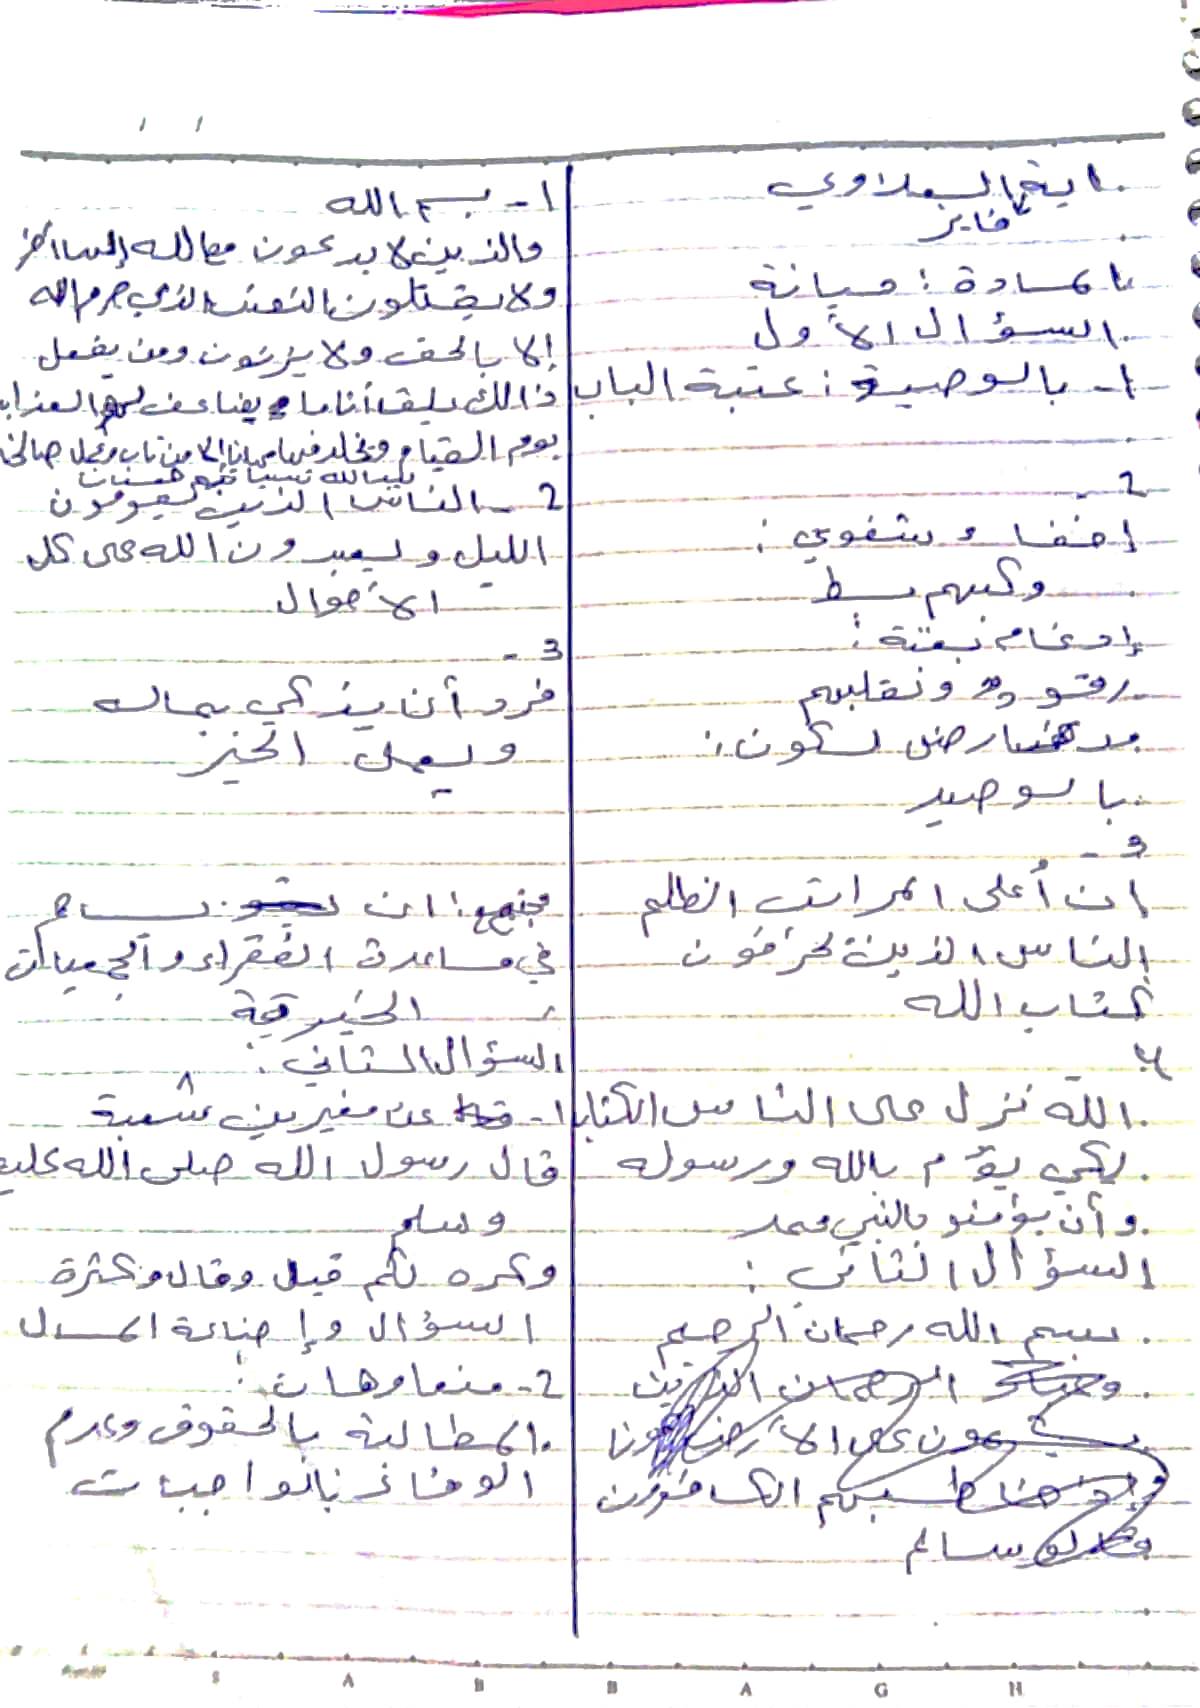 اية السعداوي
فايز
المادة: ديانة
السؤال الأول
1- بالوصيد: عتبة الباب
2-
إخفاء شفوي:
وكلبهم بسط
إدغام بغنة:
رقود ونقلبهم
مد عارض لسكون:
بالوصيد
3-
ان أعلى المراتب الظلم
الناس الذين يحرفون
كتاب الله
4
الله نزل على الناس الكتاب
لكي يؤم بالله ورسوله
وأن يؤمنو بالنبي محمد
السؤال الثاني:
بسم الله رحمان الرحيم
1- بسم الله
والذين لا يدعون مع الله إلها آخر
ولا يقتلون النفس الذي حرم الله
إلا بالحق ولا يزنون ومن يفعل
ذالك يلق أثاما يضاعف لهم العذاب
يوم القيام ويخلد فيها مهانا إلا من تاب وعمل صالحا
2- الناس الذين يقومون
الليل ويعبدون الله على كل
الأحوال
3-
فرد أن يزكي بماله
ويعمل الخير
مجتمع: ان يساهم
في مساعدة الفقراء والجمعيات
الخيرية
السؤال الثاني:
1- عن مغيرين شعبة
قال رسول الله صلى الله عليه
وسلم
وكره لكم قيل وقال وكثرة
السؤال وإضاعة المال
2- منعا وهات:
المطالبة بالحقوق وعدم
الوفاء بالواجبات